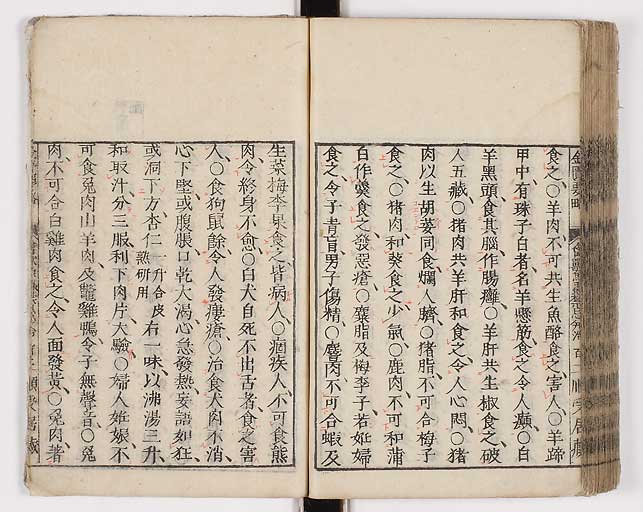 食之○羊肉不可共生魚酪食之害人○羊蹄
甲中有珠子白者名羊懸筋食之令人癲○白
羊黑頭食其腦作腸癰○羊肝共生椒食之破
人五臟○猪肉共羊肝和食之令人心悶○猪
肉以生胡荽同食爛人臍○猪脂不可合梅子
食之○猪肉和葵食之少氣○鹿肉不可和蒲
白作羹食之發惡瘡○麋脂及梅李子若妊婦
食之令子青盲男子傷精○麞肉不可合蝦及
生菜梅李果食之皆病人○痼疾人不可食熊
肉令終身不愈○白犬自死不出舌者食之害
人○食狗鼠餘令人發瘻瘡○治食犬肉不消
心下堅或腹脹口乾大渴心急發熱妄語如狂
或洞下方杏仁一升合皮熟研用右一味以沸湯三升
和取汁分三服利下肉片大驗○婦人妊娠不
可食兔肉山羊肉及鼈雞鴨令子無聲音○兔
肉不可合白雞肉食之令人面發黃○兔肉著